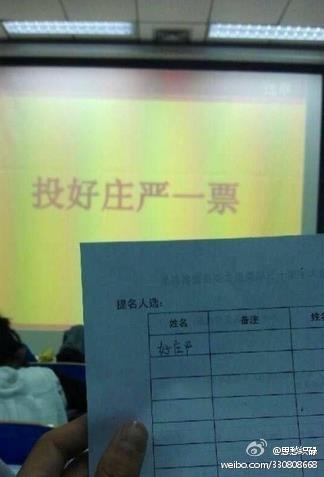 投好庄严一票
提名人选:
姓名 备注 姓
好庄严
@思愁织晨
weibo.com/330808668